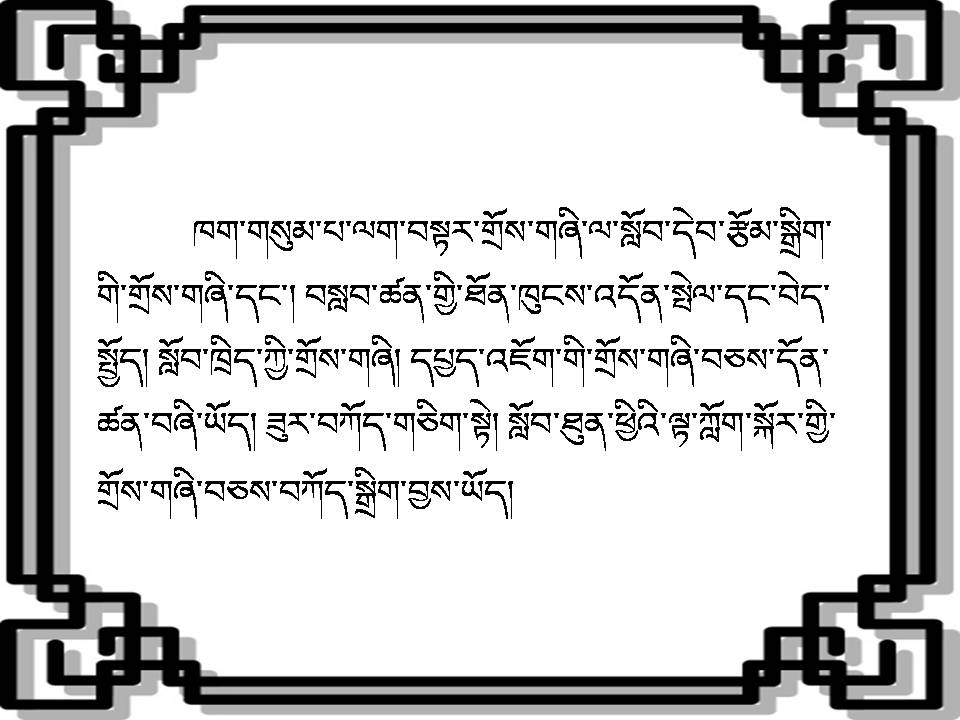 ཁག་གསུམ་པ་ལག་བསྟར་གྲོས་གཞི་ལ་སློབ་དེབ་རྩོམ་སྒྲིག་
གི་གྲོས་གཞི་དང་། བསླབ་ཚན་གྱི་ཐོན་ཁུངས་འདོན་སྤེལ་དང་བེད་
སྤྱོད། སློབ་ཁྲིད་ཀྱི་གྲོས་གཞི། དཔྱད་འཇོག་གི་གྲོས་གཞི་བཅས་དོན་
ཚན་བཞི་ཡོད། ཟུར་བཀོད་གཅིག་སྟེ། སློབ་ཐུན་ཕྱིའི་ལྟ་ཀློག་སྐོར་གྱི་
གྲོས་གཞི་བཅས་བཀོད་སྒྲིག་བྱས་ཡོད།